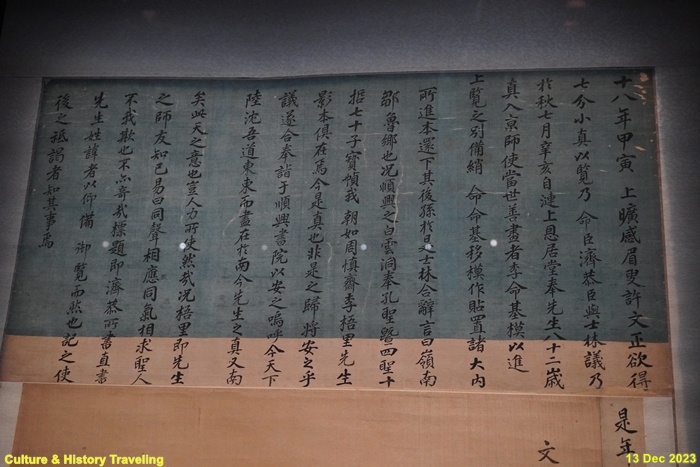 十八年甲寅 上曠感眉叟許文正欲得
七分小真以覽乃 命臣濟恭臣與士林議乃
於秋七月辛亥自漣上恩居堂奉先生八十二歲
真入京師使當世善畫者李命基摸以進
上覽之別備綃 命命基移模作貼置諸大內
所進本還下其後孫於是士林合辭言曰嶺南
鄒魯鄉也况順興之白雲洞奉孔聖曁四聖十
哲七十子寶幀我 朝如周慎齋李梧里先生
影本俱在焉今是真也非是之歸將安之乎
議遂合奉詣于順興書院以安之嗚呼今天下
陸沈吾道東東而盡在於南今先生之真又南
矣此天之意也豈人力所使然哉况梧里即先生
之師友如已易曰同聲相應同氣相求聖人
不我欺也不亦奇哉標題即濟恭所書直書
先生姓諱者以仰備 御覽而然也記之使
後之祗謁者知其事焉
是年
文
Culture & History Traveling
13 Dec 2023